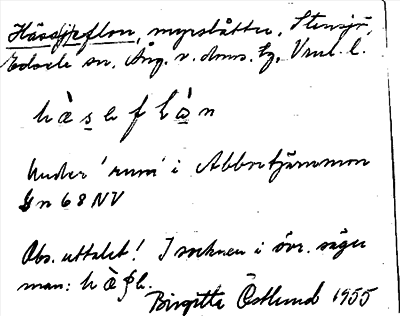 Hässjeflon, myrslåtter, Stensjö,
Edsele sn, Ång. v. doms. tg, Vnrl. l.
hà s̲ e f l à̲ n
Under 'rum' i Abborrtjärnmon
Gn 68 NV
Obs. uttalet! I socknen i övr. säger
man: h à ʃ e.
Birgitta Östlund 1955